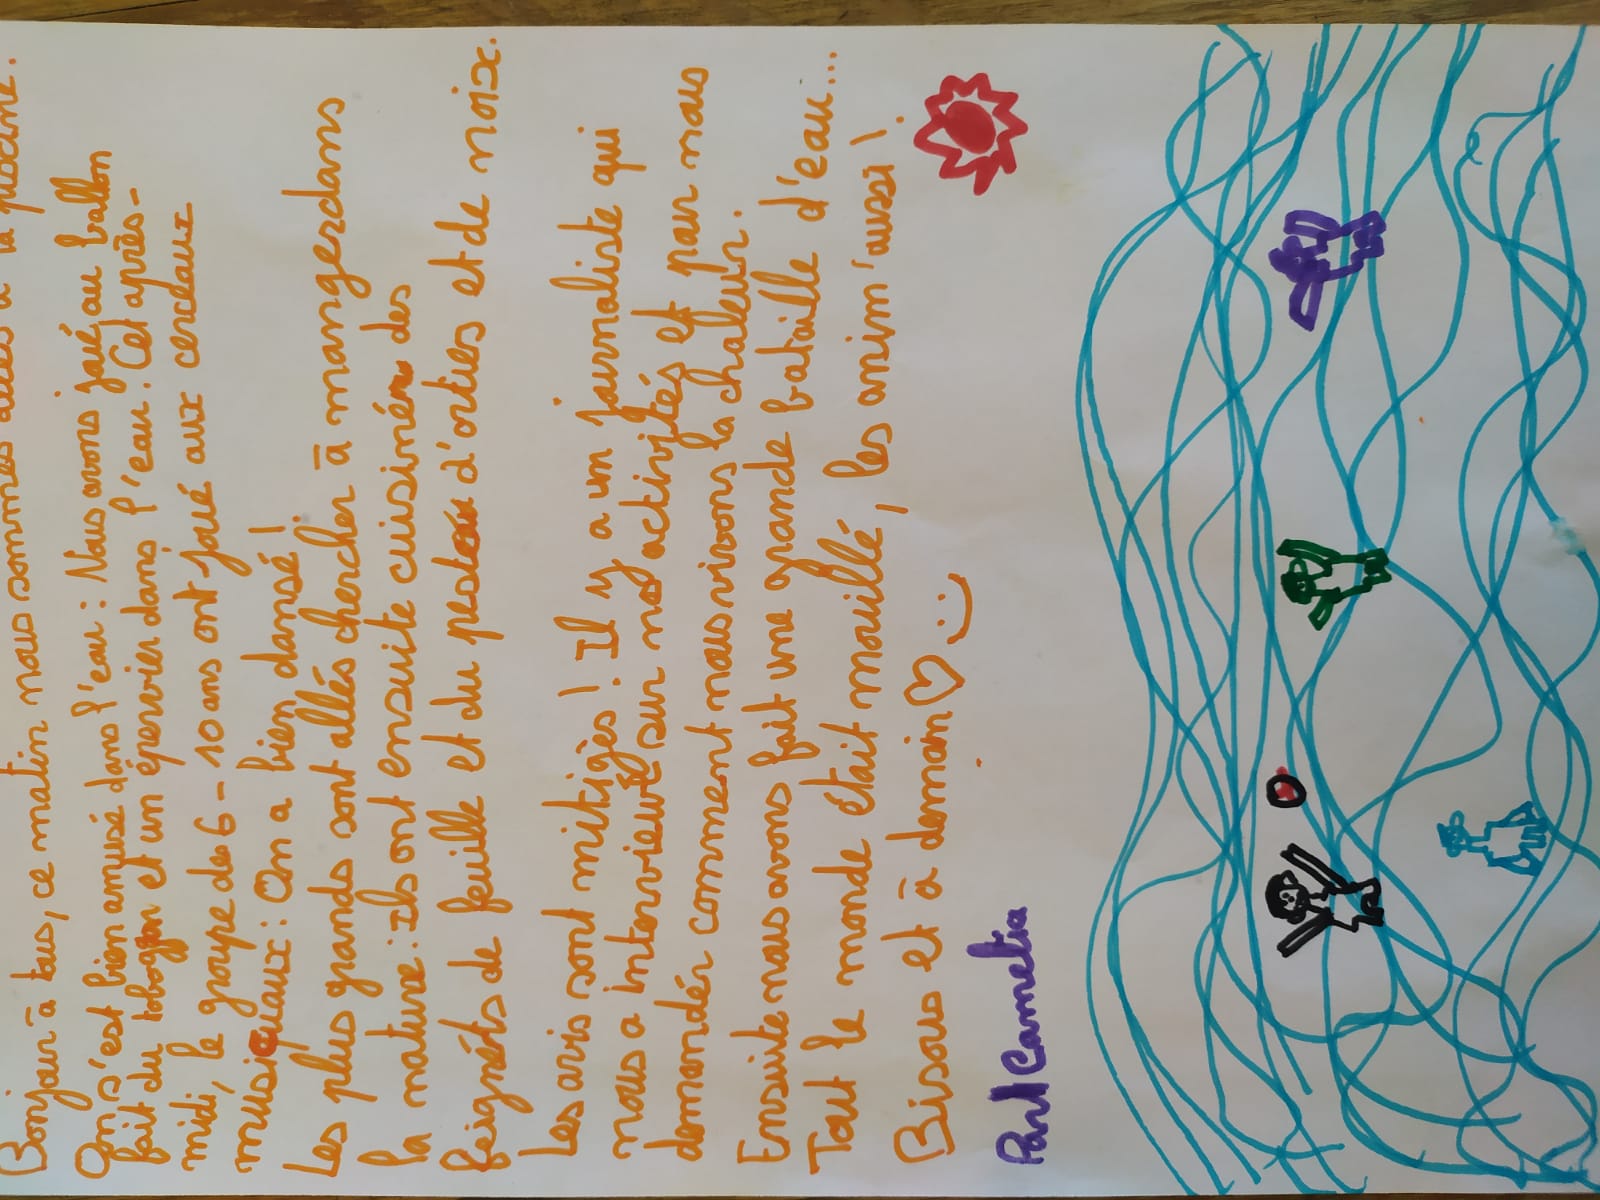 Bonjour à tous, ce matin nous sommes allés à la piscine.
On s'est bien amusé dans l'eau : Nous avons joué au ballon
fait du tobogan et un épervier dans l'eau. Cet après-
midi, le groupe des 6-10 ans ont joué aux cerceaux
musicaux : On a bien dansé !
Les plus grands sont allés chercher à manger dans
la nature : ils ont ensuite cuisiné des
beignets de feuille et du pesto d'orties et de noix.
Les avis sont mitigés ! Il y a un journaliste qui
nous a interviewé sur nos activités et pour nous
demandér comment nous vivons la chaleur.
Ensuite nous avons fait une grande bataille d'eau...
Tout le monde était mouillé, les anim' aussi !
Bisous et à demain ♡ :)